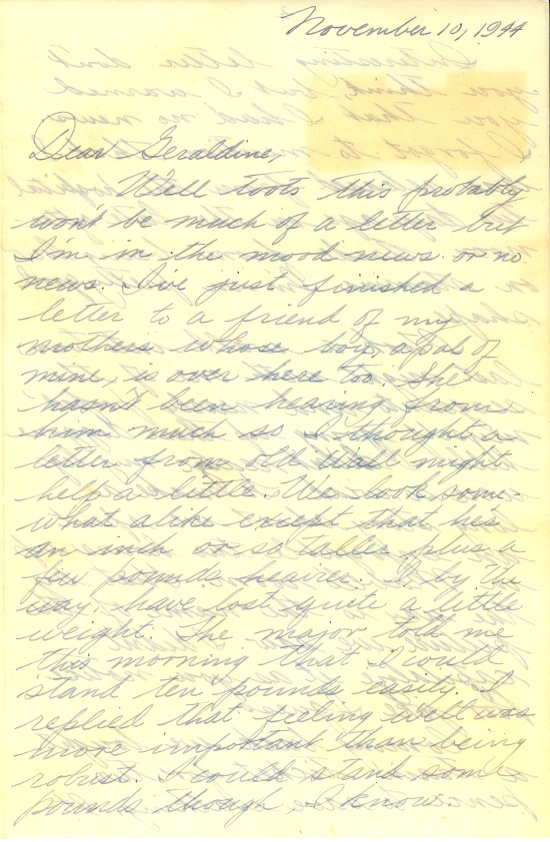 November 10, 1944
Dear Geraldine,
Well toots this probably
won't be much of a letter but
I'm in the mood news or no
news. I've just finished a
letter to a friend of my
mothers whose boy, a pal of
mine, is over here too. She
hasn't been hearing from
him much so I thought a
letter from old Wall might
help a little. We look some-
what alike except that he's
an inch or so taller plus a
few pounds heavier. I by the
way, have lost quite a little
weight. The major told me
this morning that I could
stand ten pounds easily. I
replied that feeling well was
more important than being
robust. I could stand some
pounds though, I know.